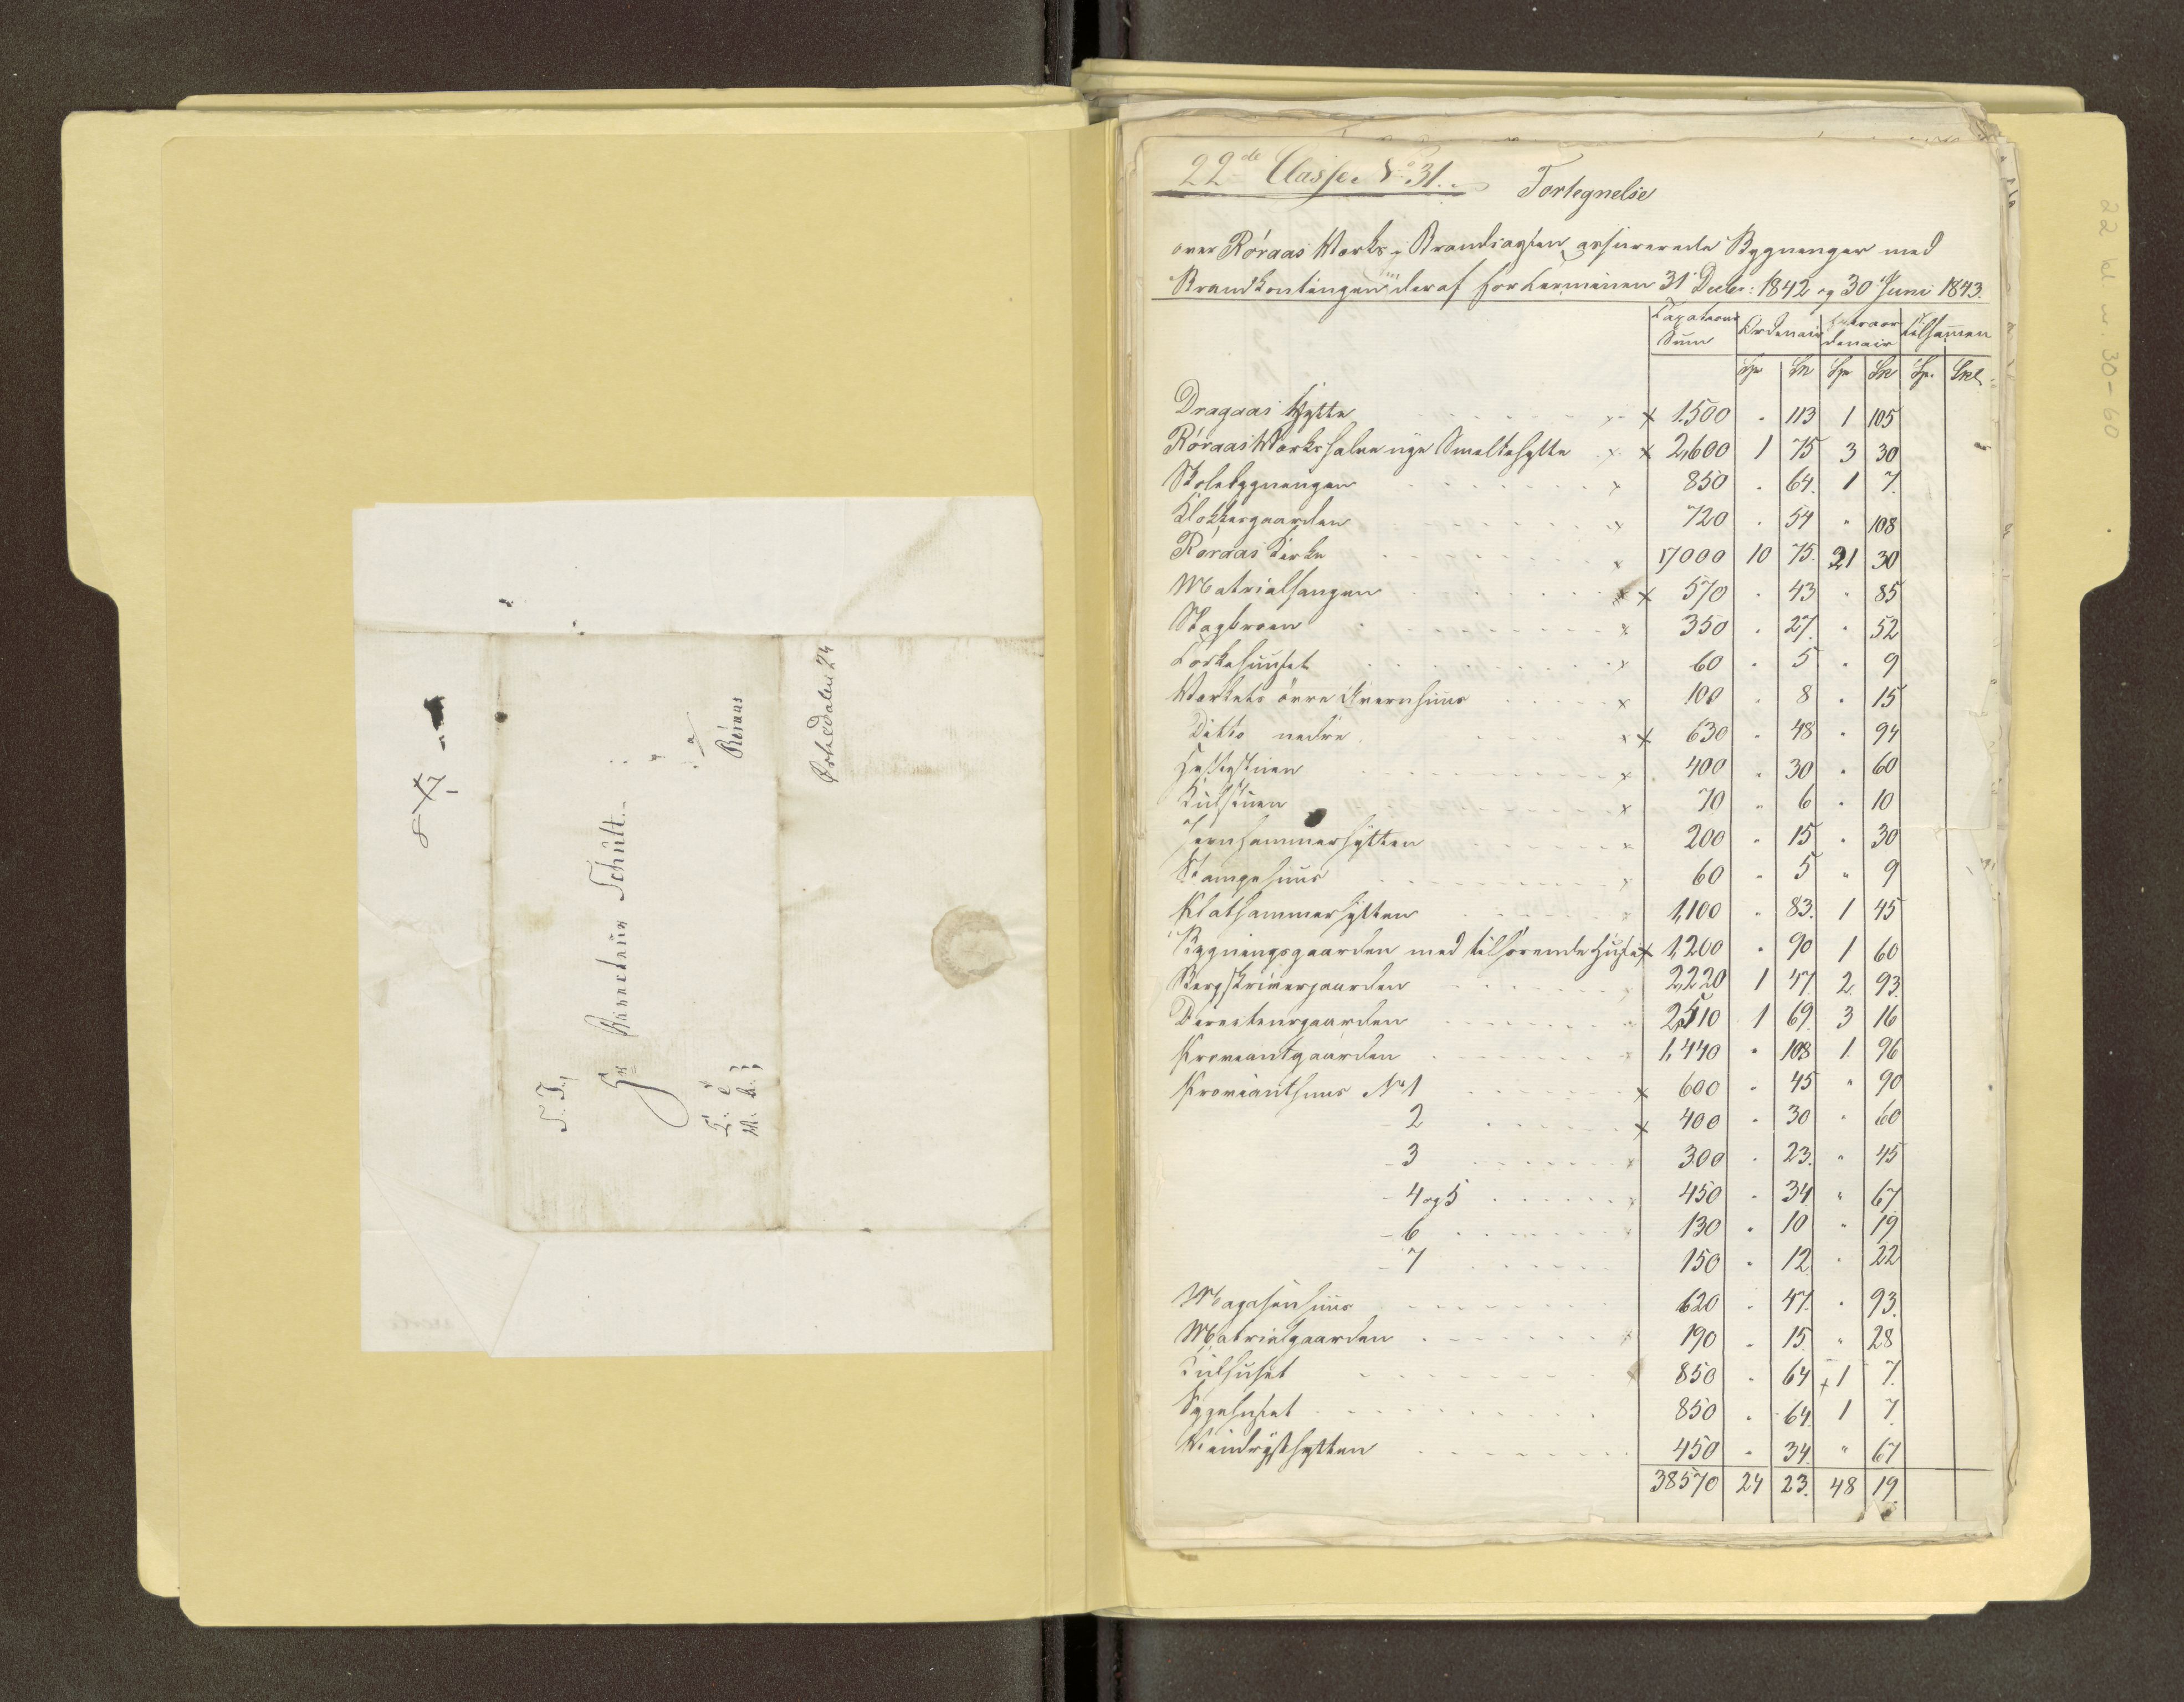 8/7
S. T.,
Hr Kammeraad Schült
Røraas
Ørkedalen 24
22de Classe No 31.
Fortegnelse
over Røraas Værks i Brandcassen assurerede Bygninger med
Brandkontingenten deraf for Terminen 31 Decbr: 1842 og 30 Juni 1843.
Taxations Sum Ordinair Extraor dinair tilsammen
Sp Sk Sp Sk Sp. Skl.
Dragaas Hytte x 1500 " 113 1 105
Røraas Værks halve nye Smeltehytte x 2,600 1 75 3 30
Skolebygningen x 850 " 64. 1 7.
Klokkergaarden x 720 " 54 " 108
Røraas Kirke x 17000 10 75. 21 30
Matrialhangen x 570 " 43 " 85
350 " 27. " 52
Tørkehuuset x 60 " 5 " 9
Værkets övre Qvernhuus x 100 " 8 " 15
Ditto nedre x 630 " 48 " 94
x 400 " 30 " 60
x 70 " 6 " 10
Jernhammerhytten x 200 " 15 " 30
Stampehuus x 60 " 5 " 9
Plathammerhytten 1,100 " 83. 1 45
Bygningsgaarden med tilhørende Huse x 1,200 " 90 1 60
Bergskriverjaarden 2,220 1 47 2. 93.
Directeurgaarden 2,510 1 69. 3 16
Proviantgaarden 1,440 " 108 1. 96
Provianthuus No 1 x 600 " 45 " 90
- 2 x 400 " 30 " 60
- 3 300 " 23. " 45
- 4 og 5 450 " 34 " 67
- 6 130 " 10 " 19
- 7 150 " 12 " 22
Magasinhuus 620 " 47. " 93.
Matrialgaarden 190 " 15. " 28
Kulhuset 850 " 64 1 7.
Sygehuset 850 " 64. 1 7.
450 " 34. " 67
38570 24 23. 48 19.
22 kl nr. 30-60